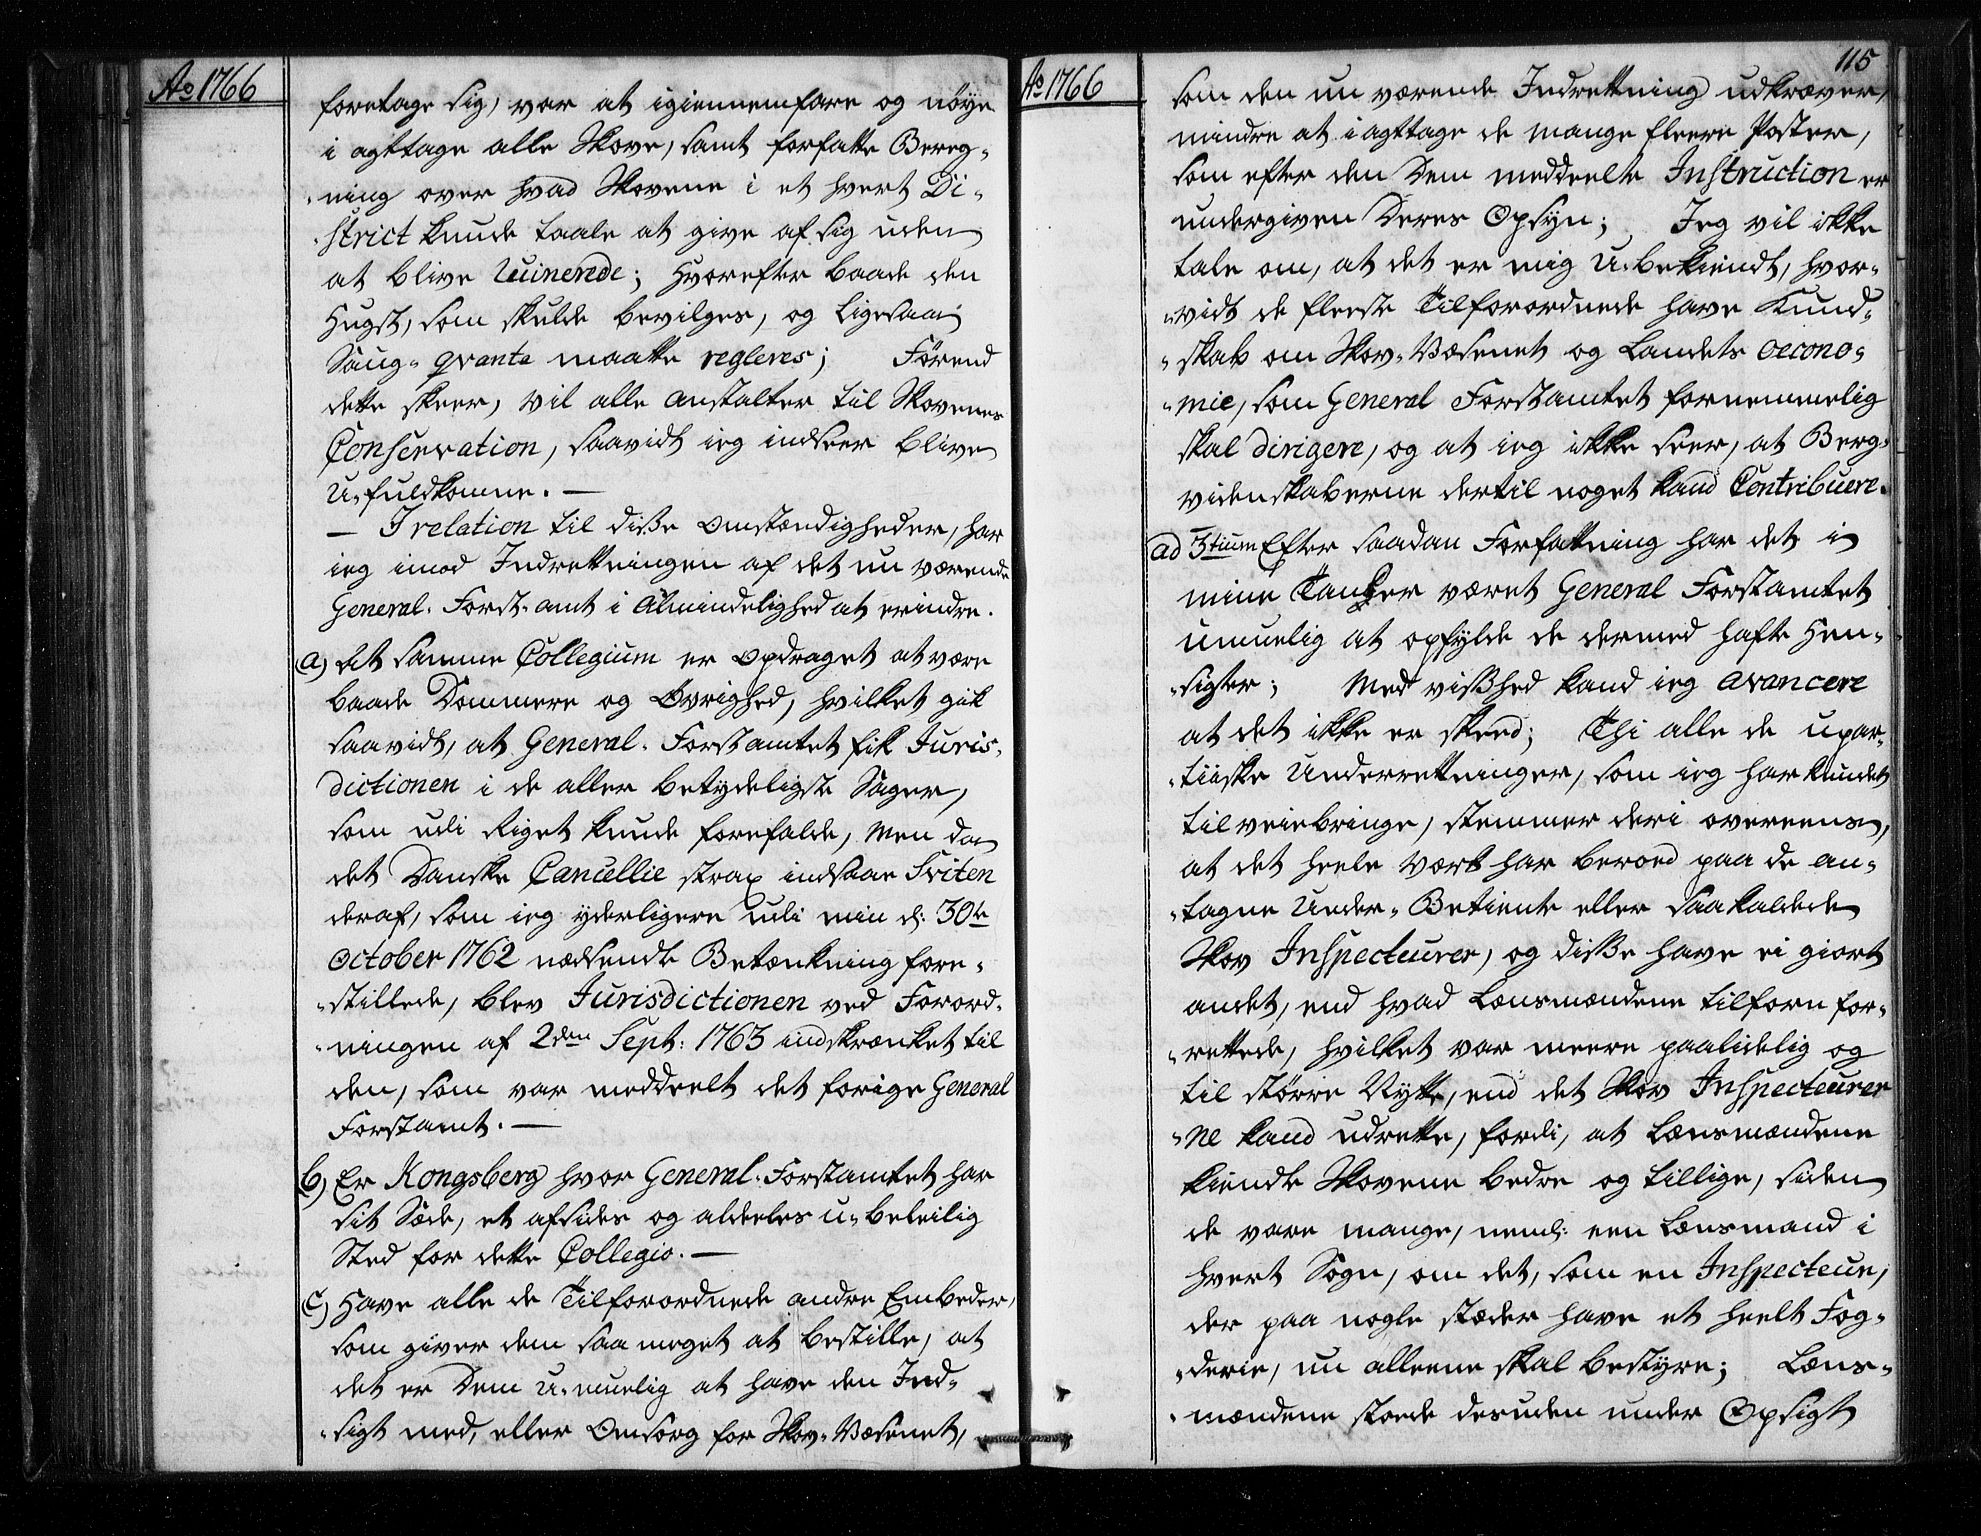 Ao 1766
foretage sig, var at igiennemfare og nøye
i agttage alle Skove, samt forfatte Bereg-
-ning over hvad Skovene i et hvert Di-
-strict kunde taale at give af sig uden
at blive Ruinerede; Hvorefter baade den
Hugst, som skulde bevilges, og ligesaa
Saug-qvanta maatte regleres; Førend
dette skeer, vil alle Anstalter til Skovenes
Conservation, saavidt ieg indseer blive
U-fuldkomne. —
— I relation til disse Omstændigheder, har
ieg imod Indrettningen af det nu værende
General-Forst-amt i Almindelighed at erindre.
a) Det samme Collegium er Opdraget at være
baade Dommere og Øvrighed, hvilket gik
saavidt, at General-Forstamtet fik Juris-
dictionen i de aller betydeligste Sager,
som udi Riget kunde forefalde, Men da
det Danske Cancellie strax indsaae Sviten
deraf, som ieg yderligere udi min d: 30te
October 1762 nedsendte Betænkning fore-
-stillede, blev Jurisdictionen ved Forord-
-ningen af 2den Sept: 1763 indskrænket til
den, som var meddeelt det forige General
Forstamt. —
b) Er Kongsberg hvor General-Forstamtet har
sit Sæde, et afsides og aldeeles u-beleilig
Sted for dette Collegio. —
c) Have alle de Tilforordnede andre Embeder,
som giver dem saa meget at bestille, at
det er Dem U-muelig at have den Ind-
-sigt med, eller Omsorg for Skov-Væsenet,
Ao 1766
115
som den nu værende Indrettning udkræver,
mindre at i agttage de mange fleere Poster,
som efter den Dem meddeelte Instruction er
undergiven Deres Opsyn; Jeg vil ikke
tale om, at det er mig U-bekiendt, hvor-
-vidt de fleeste Tilforordnede have Kund-
-skab om Skov-Væsenet og Landets oecono-
-mie, som General Forstamtet fornemmelig
skal dirigere, og at ieg ikke seer, at Berg-
videnskaberne dertil noget kand Contribuere.
ad 3tium Efter saadan Forfattning har det i
mine Tanker været General Forstamtet
umuelig at opfylde de dermed hafte Hen-
-sigter; Med visshed kand ieg avancere
at det ikke er skeed; Thi alle de upar-
-tiiske Underrettninger, som ieg har kundet
tilveiebringe, stemmer deri overeens,
at det heele Værk har beroed paa de an-
-tagne Under-Betiente eller saakaldede
Skov Inspecteurer, og disse have ei giort
andet, end hvad Lænsmændene tilforn for-
-rettede, hvilket var meere paalidelig og
til større Nytte, end det Skov Inspecteurer
-ne kand udrette, fordi, at Lænsmændene
kiendte Skovene bedre og tillige, siden
de vare mange, neml: een Lænsmand i
hvert Sogn, om det, som en Inspecteur,
der paa nogle stæder have et heelt Fog-
-derie, nu alleene skal bestyre; Læns-
-mændene stoede desuden under Opsigt